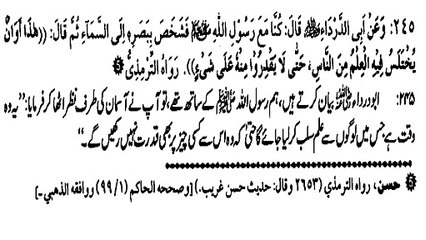 ٢٤٥: وَعَنْ أَبِی الدَّرْدَاءِ ﷛ قَالَ: کُنَّا مَعَ رَسُولِ اللّٰهِ ﷺ فَشَخَصَ بِبَصَرِهٖ إِلَی السَّمَاءِ ثُمَّ قَالَ: ((هٰذَا أَوَانٌ
یُخْتَلَسُ فِیْهِ الْعِلْمُ مِنَ النَّاسِ، حَتّٰی لَا یَقْدِرُوْا مِنْهُ عَلٰی شَیْءٍ)). رَوَاهُ التِّرْمِذِیُّ
۲۴۵: ابودرداء ﷛ بیان کرتے ہیں، ہم رسول اللہ ﷺ کے ساتھ تھے، تو آپ نے آسمان کی طرف نظر اٹھا کر فرمایا: ”یہ وہ
وقت ہے جس میں لوگوں سے علم سلب کر لیا جائے گا حتیٰ کہ وہ اس سے کسی چیز پر بھی قدرت نہیں رکھیں گے۔“
حسن، رواه الترمذي (٢٦٥٣ وقال: حديث حسن غريب.) [وصححه الحاكم (١/ ٩٩) ووافقه الذهبي-]